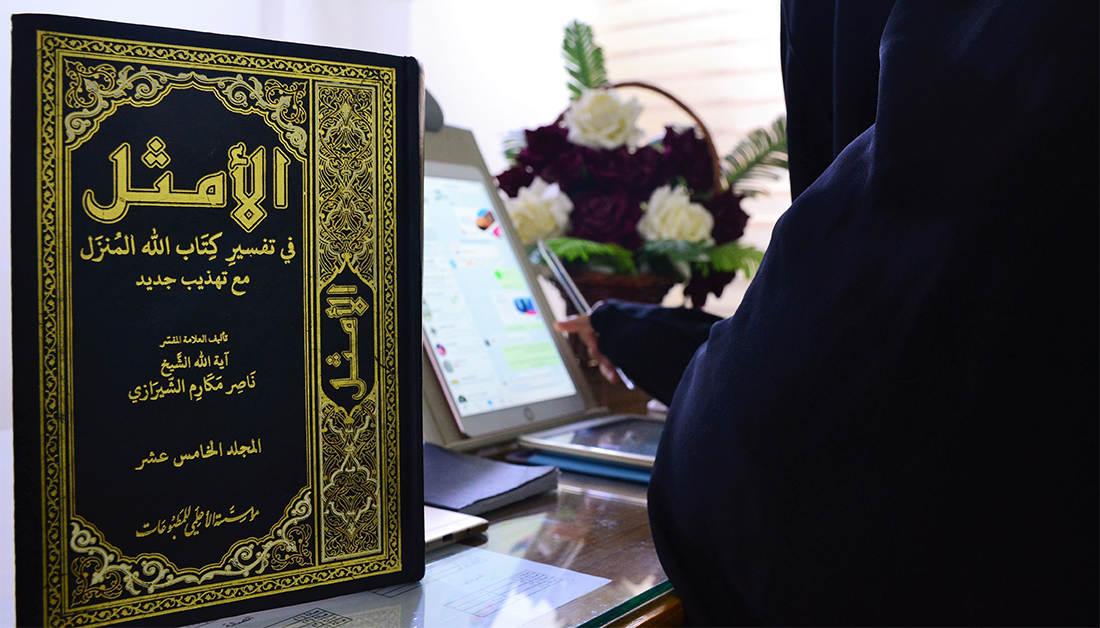 الأمثل
في تفسيرِ كِتَاب الله المُنزَل
مع تهذيب جديد
تأليف العلامة المفسّر
آية الله الشَّيخ
نَاصِر مَكارِم الشِّيرَازي
المجلد الخامس عشر
مؤسَّسة الأعلمي للمطبُوعات
الأمثل